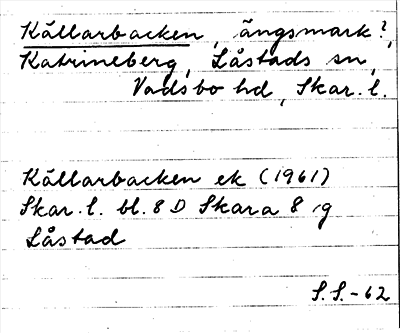 Källarbacken, ängsmark?,
Katrineberg, Låstads sn,
Vadsbo hd, Skar. l.
Källarbacken ek (1961)
Skar. l. bl. 8 D Skara 8 g
Låstad
S.S.-62